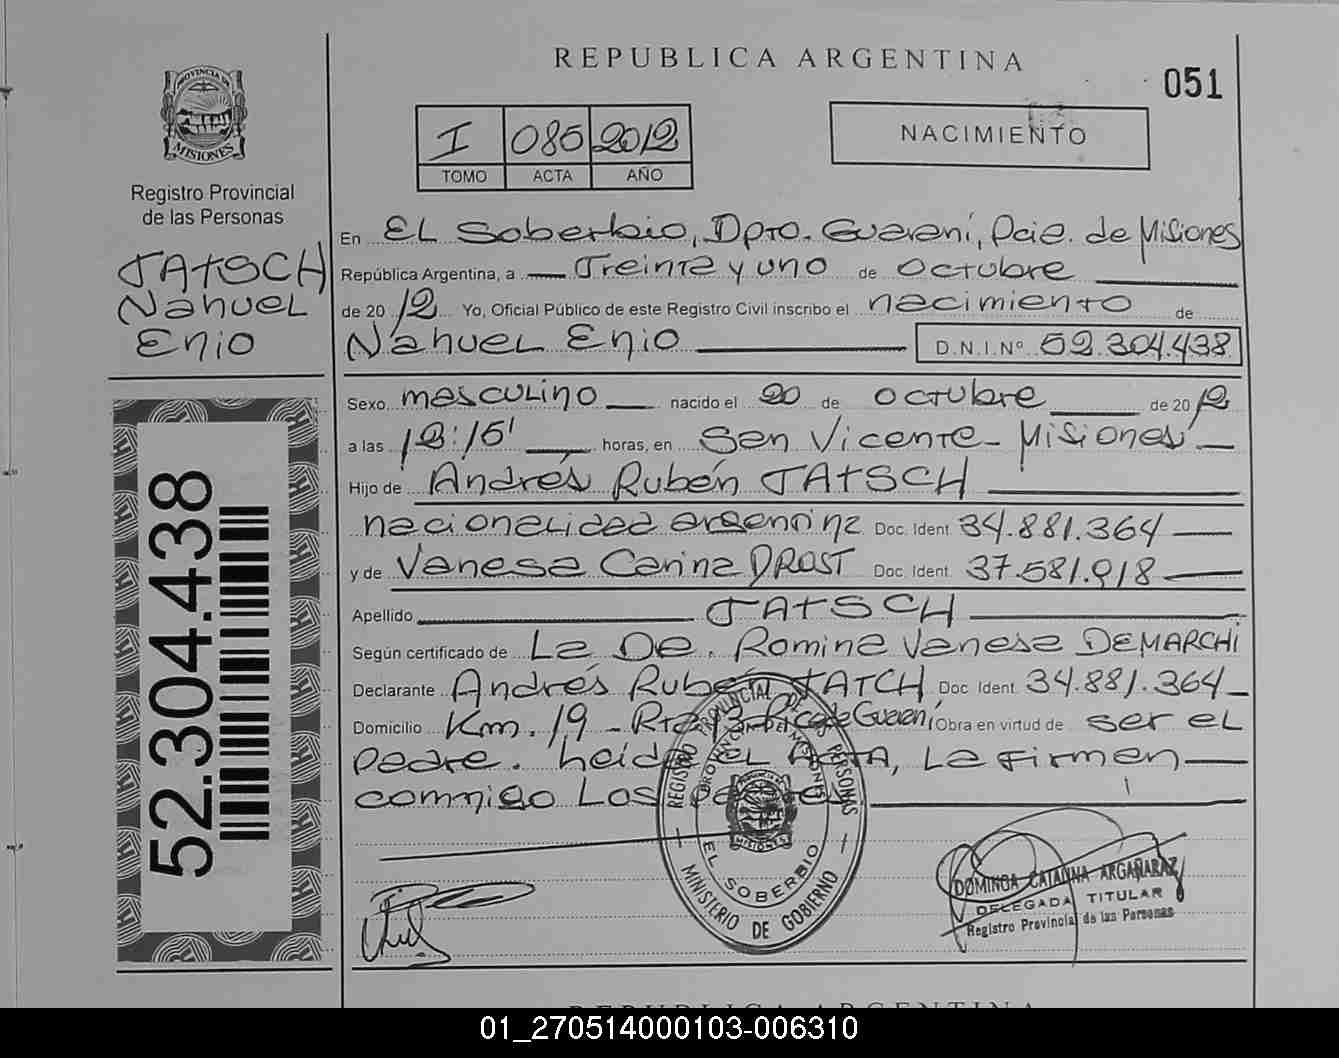 REPUBLICA ARGENTINA
051
PROVINCIA DE
MISIONES
Registro Provincial
de las Personas
I 085 2012
TOMO ACTA AÑO
NACIMIENTO
TATSCH
Nahuel
Enio
En EL Soberbio, Dpto. Guaraní, Pcia. de Misiones
República Argentina, a Treinta y uno de octubre
de 2012 Yo, Oficial Público de este Registro Civil inscribo el nacimiento de
Nahuel Enio D.N.I.Nº 52.304.438
Sexo masculino nacido el 20 de octubre de 2012
a las 12:15' horas, en San Vicente - Misiones
Hijo de Andrés Rubén TATSCH
nacionalidad argentina Doc. Ident. 34.881.364
y de Vanesa Carina DROST Doc. Ident. 37.581.918
Apellido TATSCH
Según certificado de La De. Romina Vanesa DEMARCHI
Declarante Andrés Rubén TATCH Doc. Ident. 34.881.364
Domicilio Km. 19 - Rta 13 - Pcode Guaraní Obra en virtud de ser el
padre. Leida el Acta, la firman
conmigo Los padres
52.304.438
REGISTRO PROVINCIAL DE LAS PERSONAS
PROVINCIA DE MISIONES
MISIONES
EL SOBERBIO
MINISTERIO DE GOBIERNO
DOMINGA CATALINA ARGAÑARAZ
DELEGADA TITULAR
Registro Provincial de las Personas
REPUBLICA ARGENTINA
01_270514000103-006310